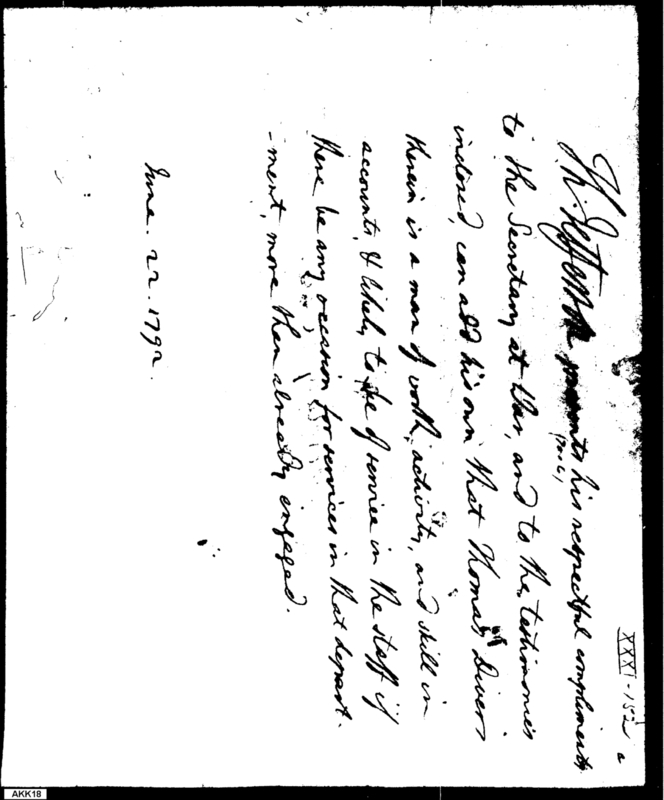 XXXI-152
Th. Jefferson presents his respectful compliments
to the Secretary at War, and to the testimonies
inclosed, can add his own that Thomas Divers
therein is a man of worth, activity, and skill in
accounts, & likely to be of service in the staff if
there be any occasion for services in that depart-
-ment, more than already engaged.
June. 22. 1792.
AKK18